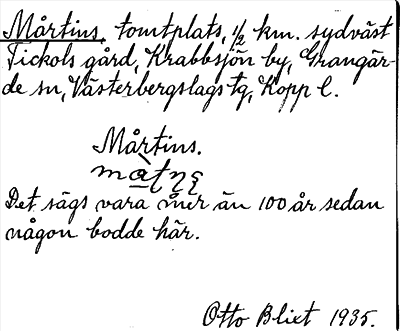 Mårtins, tomtplats, 1/2 km. sydväst
Fickols gård, Krabbsjön by, Grangär-
de sn, Västerbergslags tg, Kopp l.
Mårtins.
Det sägs vara mer än 100 år sedan
någon bodde här.
Otto Blixt 1935.